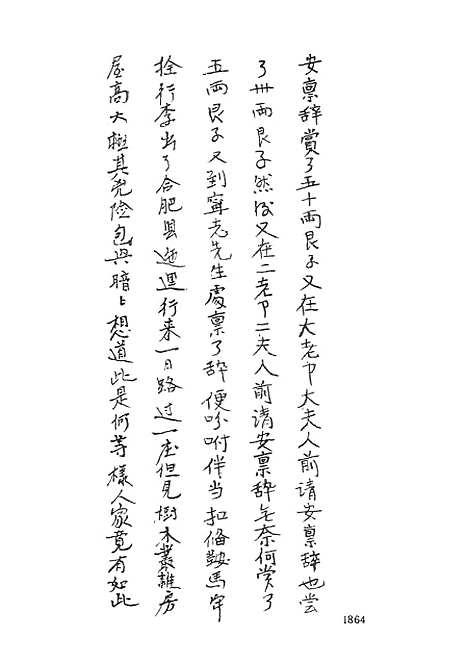 安禀辞赏了五十两艮子又在大老卩大夫人前请安禀辞也尝
了卅两艮子然后又在二老卩二夫人前请安禀辞无奈何赏了
五两艮子又到寗老先生處禀了辞便吩咐伴当扣俻鞍马牢
拴行李出了合肥县迤逦行来一日路过一庄但見樹木叢雜房
屋高大極其兇险包兴暗暗想道此是何等樣人家竟有如此
1864